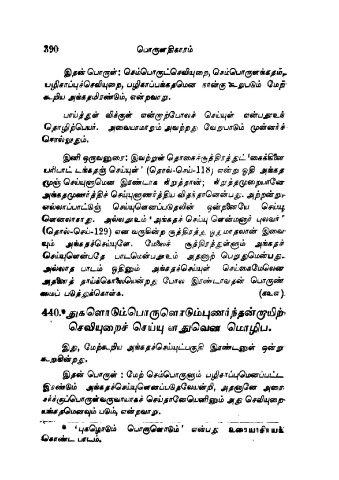 390 பொருளதிகாரம்
இதன் பொருள் : செம்பொருட்செவியுறை, செம்பொருளங்கதம்,
பழிகரப்புச்செவியுறை, பழிகரப்பங்கதமென நான்கு கூறுபடும் மேற்
கூறிய அங்கதமிரண்டும், என்றவாறு.
பாய்த்துள் விக்குள் என்றாற்போலச் செய்யுள் என்பதூஉந்
தொழிற்பெயர். அவையாமாறும் அவற்றது வேறுபாடும் முன்னர்ச்
சொல்லுதும்.
இனி ஒருவனுரை : இவற்றின் தொகைச்சூத்திரத்துட் 'கைக்கிளை
பரிபாட் டங்கதஞ் செய்யுள்' (தொல்-செய்-118) என்று ஓதி அங்கத
முஞ் செய்யுளுமென இரண்டாக நிறுத்தான்; நிறுத்தமுறையானே
அங்கதமுணர்த்திச் செய்யுளுணர்த்திய விதந்தானென்பது. அற்றன்று;
எல்லாப்பாட்டுஞ் செய்யுளெனப்படுதலின் ஒன்றனையே செய்யு
ளெனலாகாது. அல்லதூஉம் 'அங்கதச் செய்யு ளென்மனார் புலவர்'
(தொல்-செய்-129) என வருகின்ற சூத்திரத்து முதமாதலான் இவை
யும் அங்கதச்செய்யுளே. மேலைச் சூத்திரத்துள்ளும் அங்கதச்
செய்யுளென்பதே பாடமென்பதூஉம் அதனாற் பெறுதுமென்பது.
அல்லாத பாடம் ஓதினும் அங்கதச்செய்யுள் செய்கைமேலென
அதனைத் தாய்க்கொலையென்றது போல இரண்டாவதன் பொருண்
மைப் படுத்துக்கொள்க. (௧௨௭)
440.*துகளொடும்பொருளொடும்புணர்ந்தன்றாயிற்
செவியுறைச் செய்யு ளதுவென மொழிப.
இது, மேற்கூறிய அங்கதச்செய்யுட்பகுதி இரண்டனுள் ஒன்று
கூறுகின்றது.
இதன் பொருள் : மேற் செம்பொருளும் பழிகரப்புமெனப்பட்ட
இரண்டும் அங்கதச்செய்யுளெனப்படுதலேயன்றி, அதனானே அரை
சர்க்குப்பொருள்வருவாயாகச் செய்தாலேயெனினும் அது செவியுறை
யங்கதமெனவும் படும், என்றவாறு.
* 'புகழொடும் பொருளொடும்' என்பது உரையாசிரியர்
கொண்ட பாடம்.